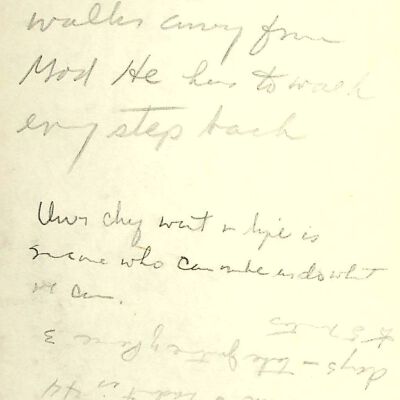 walks away from
God He has to walk
every step back
Our chief want in life is
someone who can make us do what
we can.
days – take
3